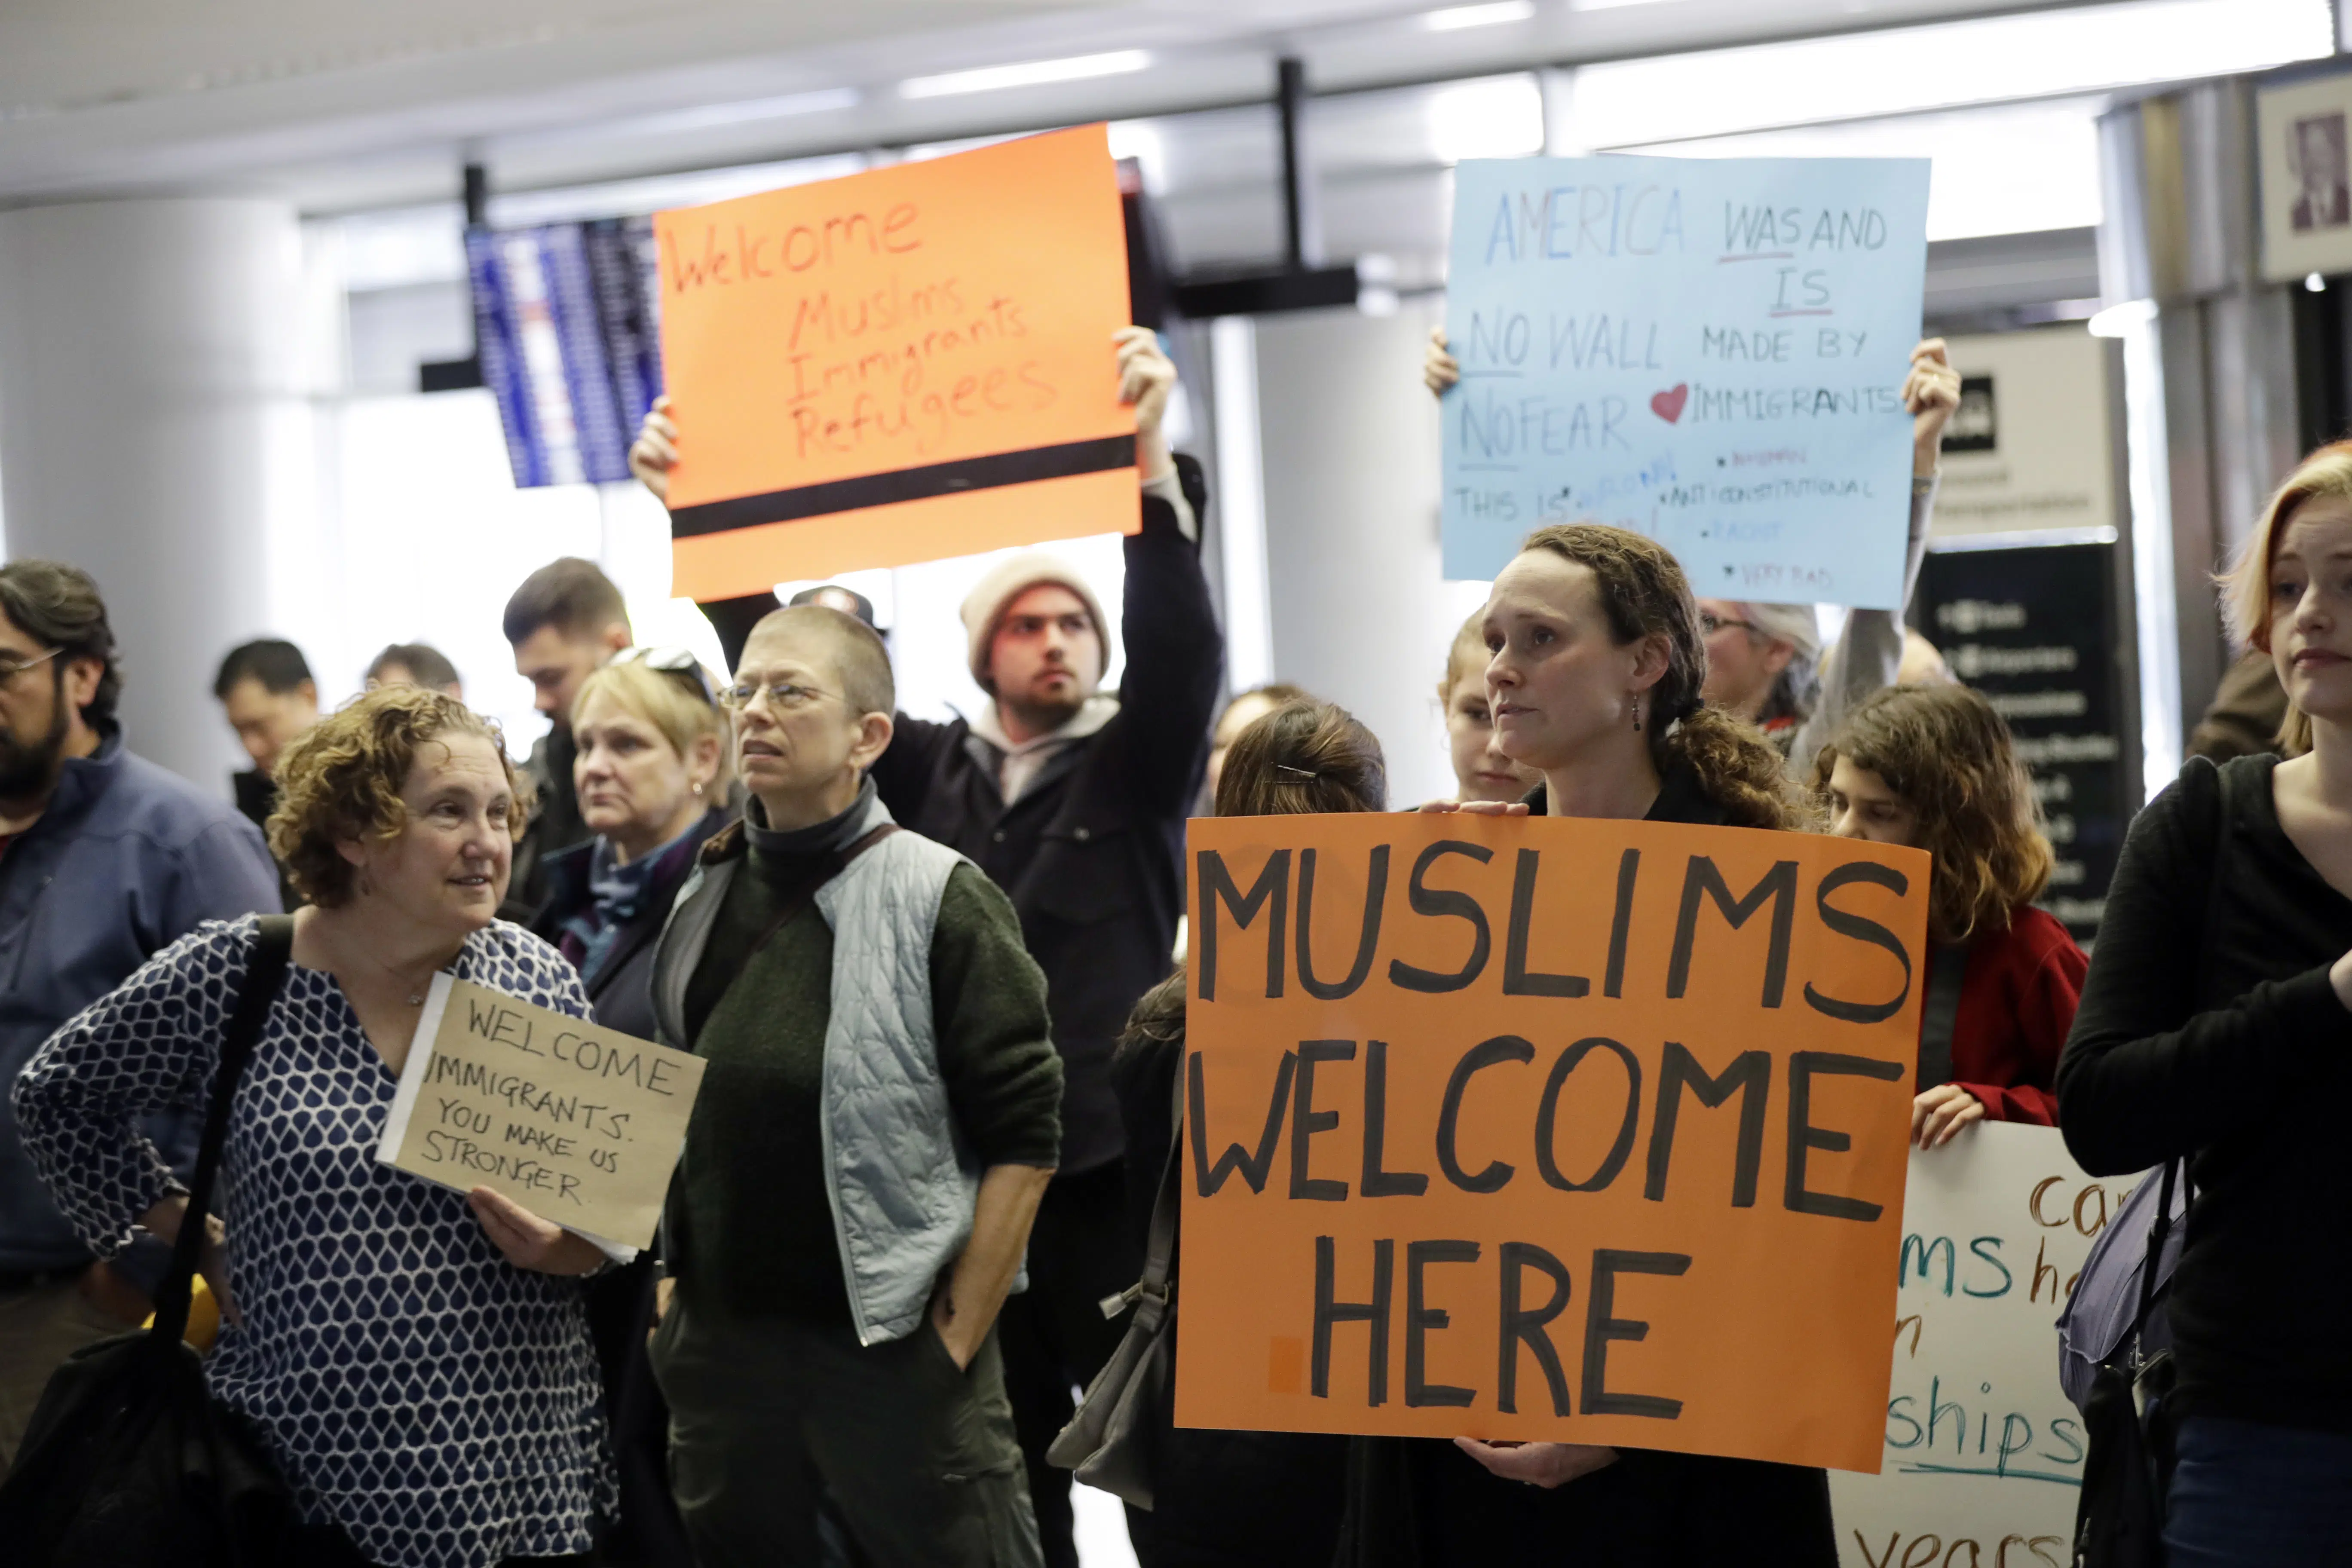 Welcome
Muslims
Immigrants
Refugees
AMERICA WAS AND
IS
NO WALL MADE BY
NO FEAR IMMIGRANTS
THIS IS
• ANTICONSTITUTIONAL
• RACIST
• VERY BAD
WELCOME
IMMIGRANTS.
YOU MAKE US
STRONGER.
MUSLIMS
WELCOME
HERE
ships
years